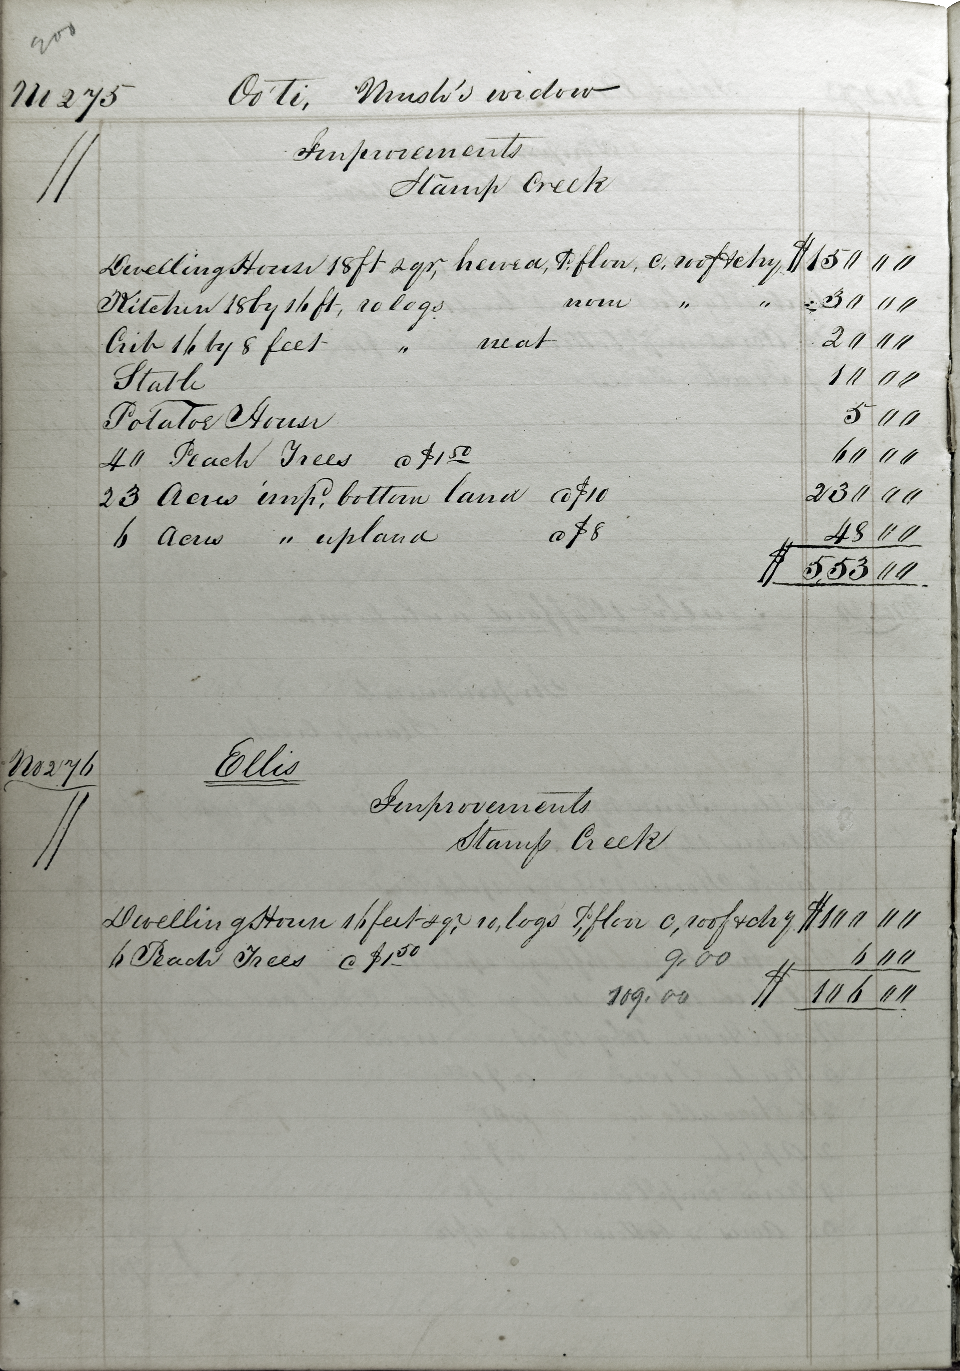 200
No 275 Oo'ti, Mush's widow
//
Improvements
Stamp Creek
Dwelling House 18 ft sqr, hewed, P. floor, c, roof & chy $150 00
Kitchen 18 by 16 ft, ro logs noor " " 30 00
Crib 16 by 8 feet " neat 20 00
Stable 10 00
Potatoe House 5 00
40 Peach Trees @ $1 50 60 00
23 Acres imp'd, bottom land @ $10 230 00
6 Acres " upland @ $8 48 00
$ 553 00
No 276 Ellis
//
Improvements
Stamp Creek
Dwelling House 16 feet sqr, ro, logs P, floor c, roof & chy $100 00
6 Peach Trees @ $1 50 9.00 6 00
109.00 $ 106 00